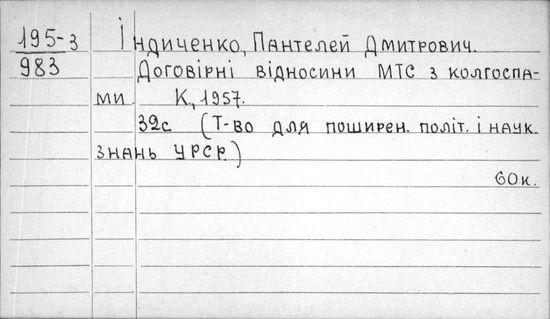 195-з
983
Індиченко, Пантелей Дмитрович.
Договірні відносини МТС з колгоспа-
ми. К., 1957.
32с (Т-во для поширен. політ. і наук.
знань УРСР.)
60к.